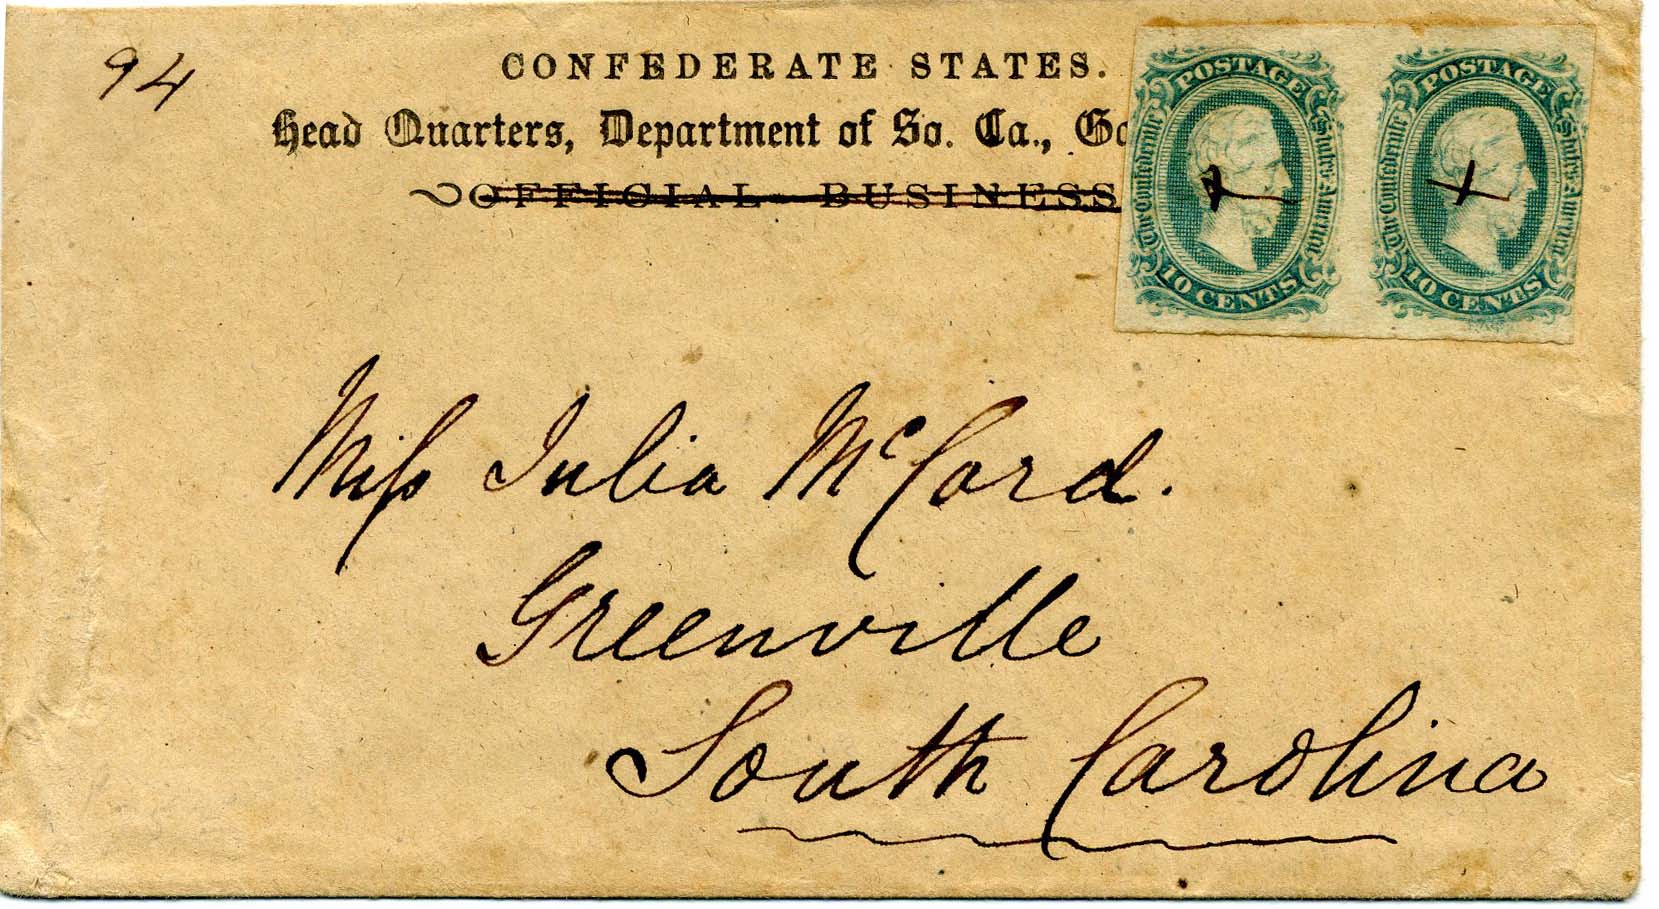 94
CONFEDERATE STATES.
Head Quarters, Department of So. Ca.,
OFFICIAL BUSINESS
POSTAGE
The Confederate States America
10 CENTS
POSTAGE
The Confederate States America
10 CENTS
Miss Julia McCord.
Greenville
South Carolina